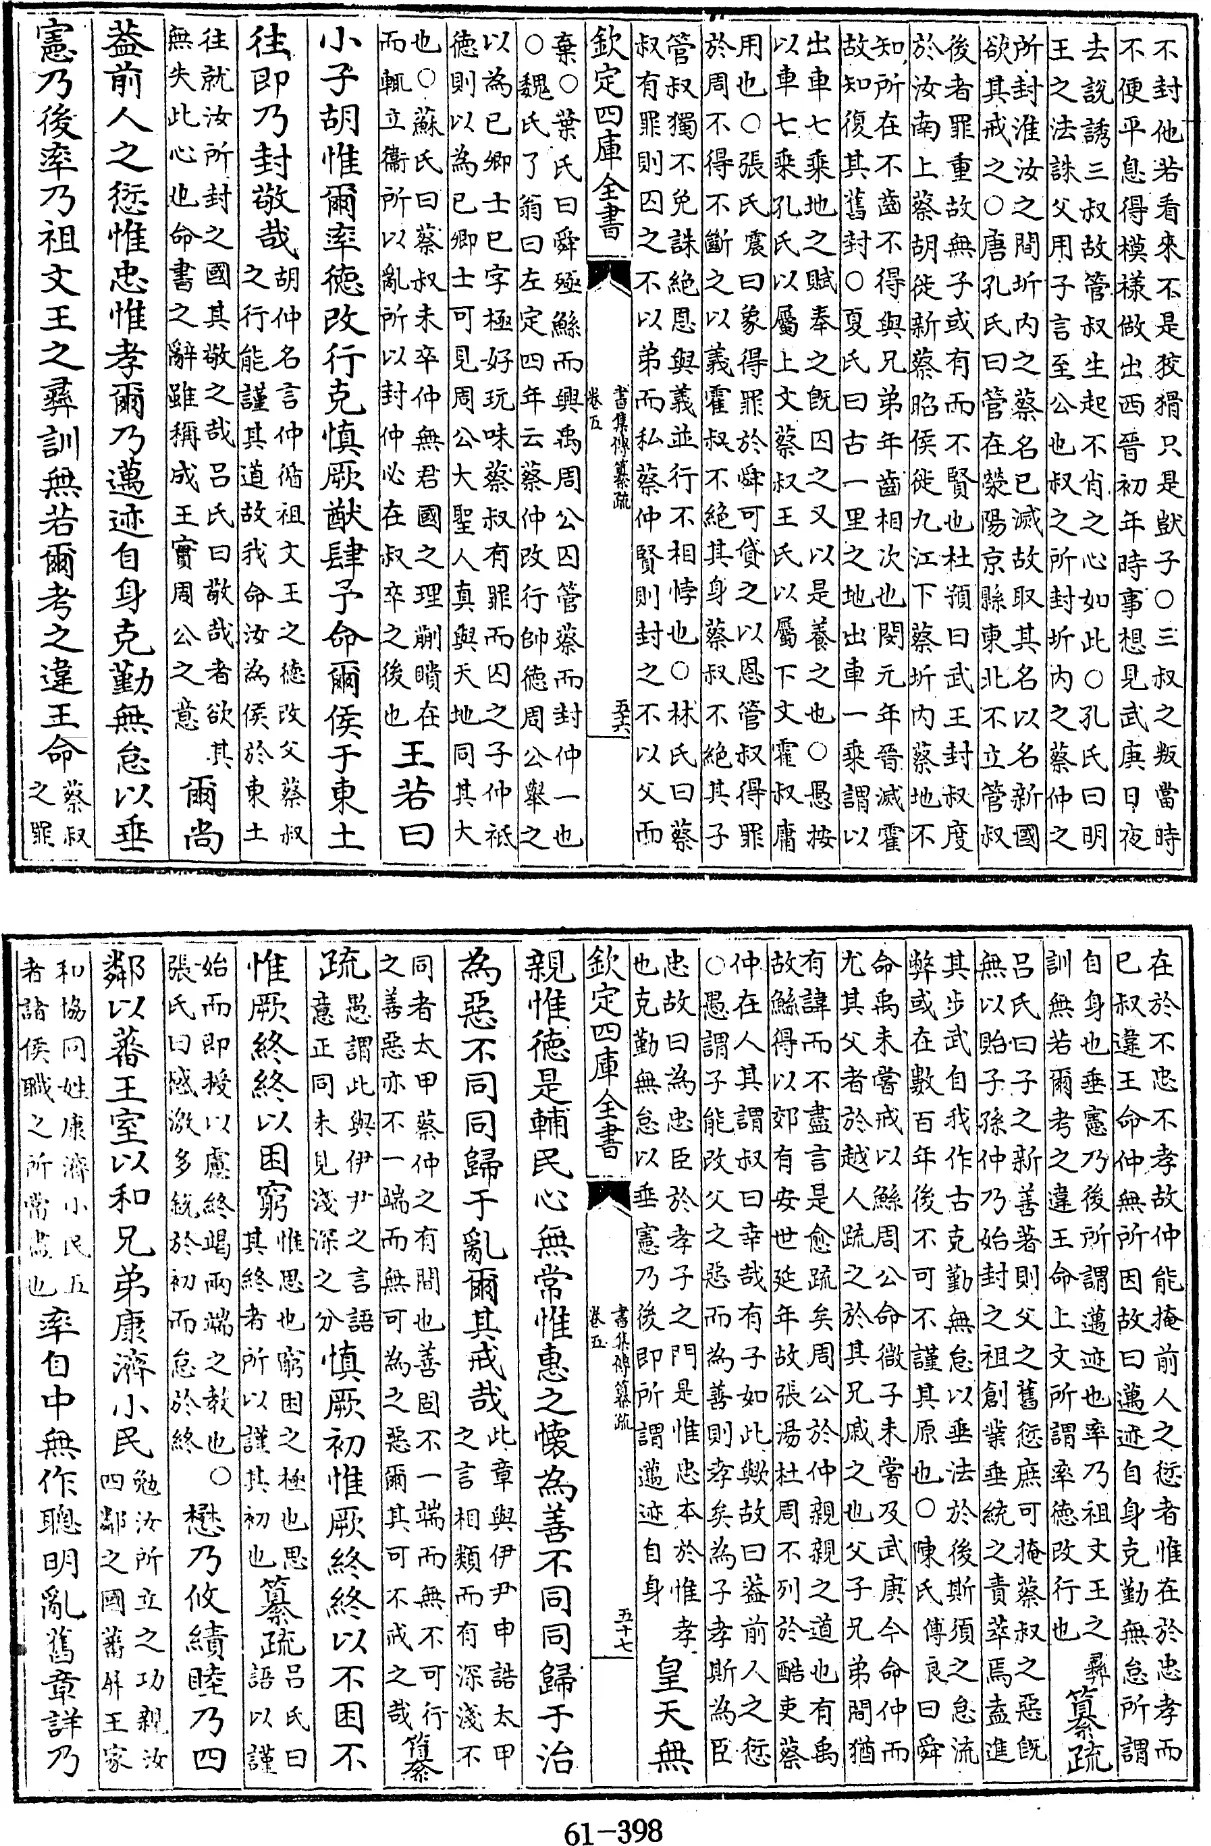 不封他若看來不是狡猾只是獃子○三叔之叛當時
不便平息得模様做出西晉初年時事想見武庚日夜
去說誘三叔故管叔生起不肖之心如此○孔氏曰明
王之法誅父用子言至公也叔之所封圻内之蔡仲之
所封淮汝之間圻内之蔡名已滅故取其名以名新國
欲其戒之○唐孔氏曰管在滎陽京縣東北不立管叔
後者罪重故無子或有而不賢也杜預曰武王封叔度
於汝南上蔡胡徙新蔡昭侯徙九江下蔡圻内蔡地不
知所在不齒不得與兄弟年齒相次也閔元年晉滅霍
故知復其舊封○夏氏曰古一里之地出車一乘謂以
出車七乘地之賦奉之既囚之又以是養之也○愚按
以車七乘孔氏以屬上文蔡叔王氏以屬下文霍叔庸
用也○張氏震曰象得罪於舜可貸之以恩管叔得罪
於周不得不斷之以義霍叔不絶其身蔡叔不絶其子
管叔獨不免誅絶恩與義並行不相悖也○林氏曰蔡
叔有罪則囚之不以弟而私蔡仲賢則封之不以父而
欽定四庫全書
書集傳纂疏
卷五
五十六
棄○葉氏曰舜殛鯀而興禹周公囚管蔡而封仲一也
○魏氏了翁曰左定四年云蔡仲改行帥徳周公舉之
以為已卿士已字極好玩味蔡叔有罪而囚之子仲祗
徳則以為已卿士可見周公大聖人真與天地同其大
也○蘇氏曰蔡叔未卒仲無君國之理蒯聵在
而輒立衛所以亂所以封仲必在叔卒之後也
王若曰
小子胡惟爾率徳改行克慎厥猷肆予命爾侯于東土
往即乃封敬哉
胡仲名言仲循祖文王之徳改父蔡叔
之行能謹其道故我命汝為侯於東土
往就汝所封之國其敬之哉吕氏曰敬哉者欲其
無失此心也命書之辭雖稱成王實周公之意
爾尚
蓋前人之愆惟忠惟孝爾乃邁迹自身克勤無怠以垂
憲乃後率乃祖文王之彞訓無若爾考之違王命
蔡叔
之罪
在於不忠不孝故仲能掩前人之愆者惟在於忠孝而
已叔違王命仲無所因故曰邁迹自身克勤無怠所謂
自身也垂憲乃後所謂邁迹也率乃祖文王之彞
訓無若爾考之違王命上文所謂率徳改行也
纂疏
吕氏曰子之新善著則父之舊愆庶可掩蔡叔之惡既
無以貽子孫仲乃始封之祖創業垂統之責萃焉盍進
其步武自我作古克勤無怠以垂法於後斯須之怠流
弊或在數百年後不可不謹其原也○陳氏傅良曰舜
命禹未嘗戒以鯀周公命微子未嘗及武庚今命仲而
尤其父者於越人疏之於其兄戚之也父子兄弟間猶
有諱而不盡言是愈疏矣周公於仲親親之道也有禹
故鯀得以郊有安世延年故張湯杜周不列於酷吏蔡
仲在人其謂叔曰幸哉有子如此歟故曰蓋前人之愆
○愚謂子能改父之惡而為善則孝矣為子孝斯為臣
忠故曰為忠臣於孝子之門是惟忠本於惟孝
也克勤無怠以垂憲乃後即所謂邁迹自身
皇天無
欽定四庫全書
書集傳纂疏
卷五
五十七
親惟徳是輔民心無常惟惠之懐為善不同同歸于治
為惡不同同歸于亂爾其戒哉
此章與伊尹申誥太甲
之言相類而有深淺不
同者太甲蔡仲之有間也善固不一端而無不可行
之善惡亦不一端而無可為之惡爾其可不戒之哉
纂
疏
愚謂此與伊尹之言語
意正同未見淺深之分
慎厥初惟厥終終以不困不
惟厥終終以困窮
惟思也窮困之極也思
其終者所以謹其初也
纂疏
吕氏曰
語以謹
始而即授以慮終竭兩端之教也○
張氏曰感激多銳於初而怠於終
懋乃攸績睦乃四
鄰以蕃王室以和兄弟康濟小民
勉汝所立之功親汝
四鄰之國蕃屏王家
和協同姓康濟小民五
者諸侯職之所當盡也
率自中無作聰明亂舊章詳乃
61-398